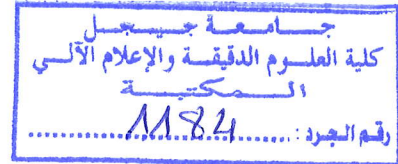 جامعة جيجل
كلية العلوم الدقيقة والإعلام الآلي
المكتبة
رقم الجرد : 1184